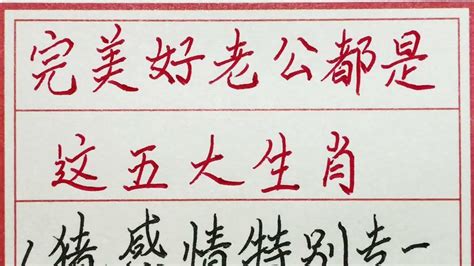 完美好老公都是
这五大生肖
猪感情特别专一